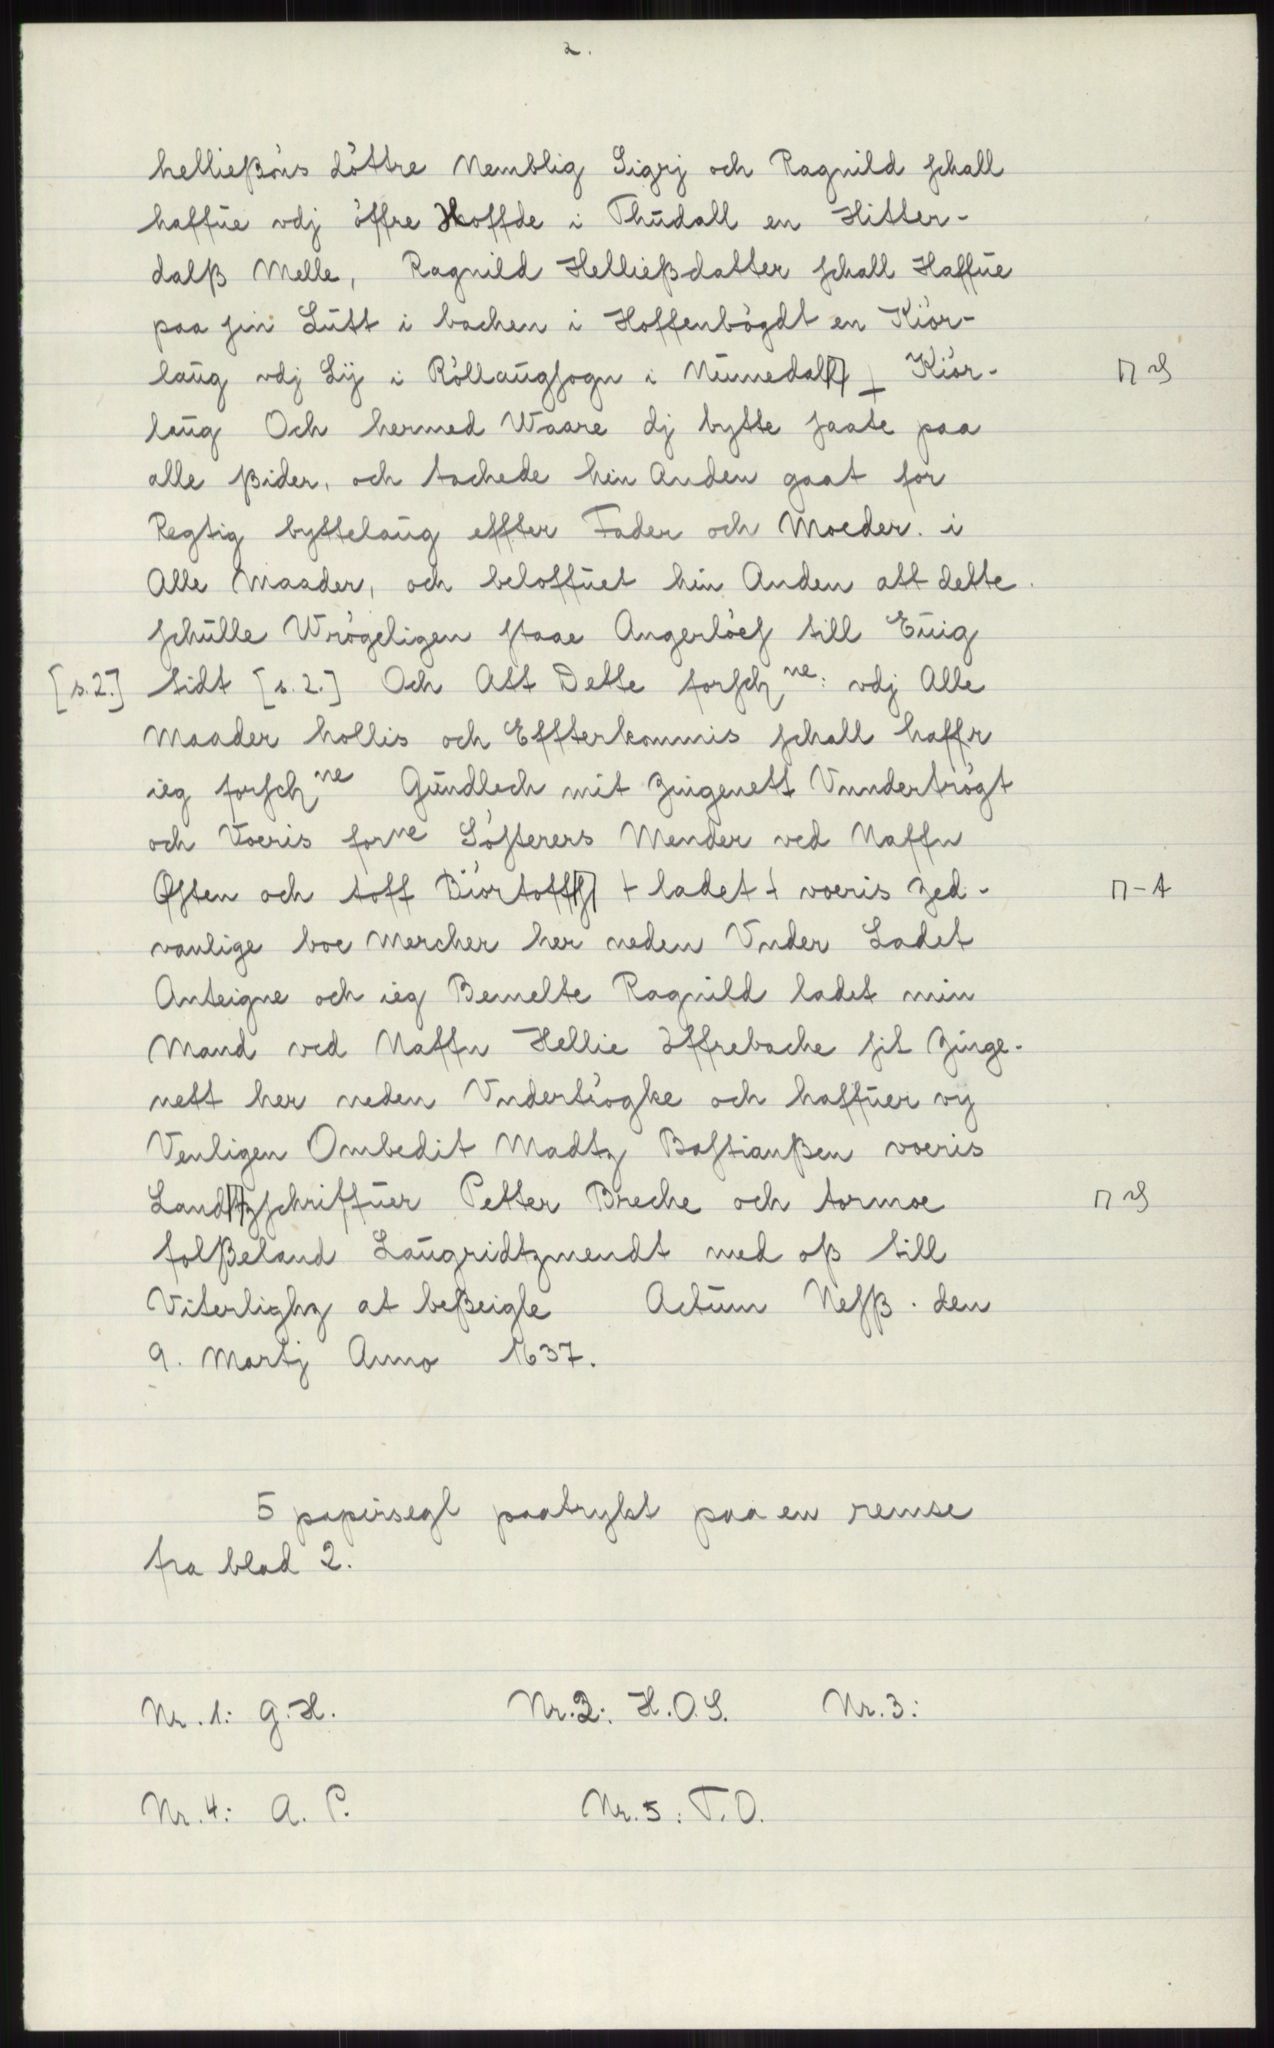 2.
helließöns döttre Nemblig Sigrj och Ragnild schall
haffue vdj öffre Hoffde i Thudall en Hitter-
dalß Melle, Ragnild Helließdatter schall Haffue
paa sin Lutt i bachen i Hoffenbögdt en Kiör-
laug vdj Lij i Röllaugsogn i Numedalß ⊥ Kiör- ⊓ ß
laug Och hermed Waare dj bytte saate paa
alle ßider, och tachede hin Anden gaat for
Regtig byttelaug effter Fader och Moeder. i
Alle Maader, och beloffuet hin Anden att dette
schulle Wrögeligen staae Angerlöes till Euig
[s.2.] tidt [s.2.] Och Att Dette forsch ne: vdj Alle
Maader hollis och Effterkommis schall haffr
ieg forsch ne Gundlech mit Zingenett Vnndertrögt
och Voeris for ne Söstereres Mender ved Naffn
Østen och toff Biörtoffs + ladet + voeris Zed- ⊓-t
vanlige boe Mercher her neden Vnder Ladet
Anteigne och ieg Bemelte Ragnild ladet min
Mand ved Naffn Hellie öffrebache sit Zinge-
nett her neden Vndertrögke och haffuer vij
Venligen Ombedit Madtz Bastianßen voeris
Landtzschriffuer Petter Breche och tormoe ⊓ ß
folßeland Laugridtzmendt med oß till
Viterlighz at beßeigle Actum Nesß. den
9. Martj Anno 1637.
5 papirsegl paatrykt paa en remse
fra blad 2.
Nr. 1: G.H. Nr. 2: H.O.S. Nr. 3:
Nr. 4: A. P. Nr. 5: T.O.